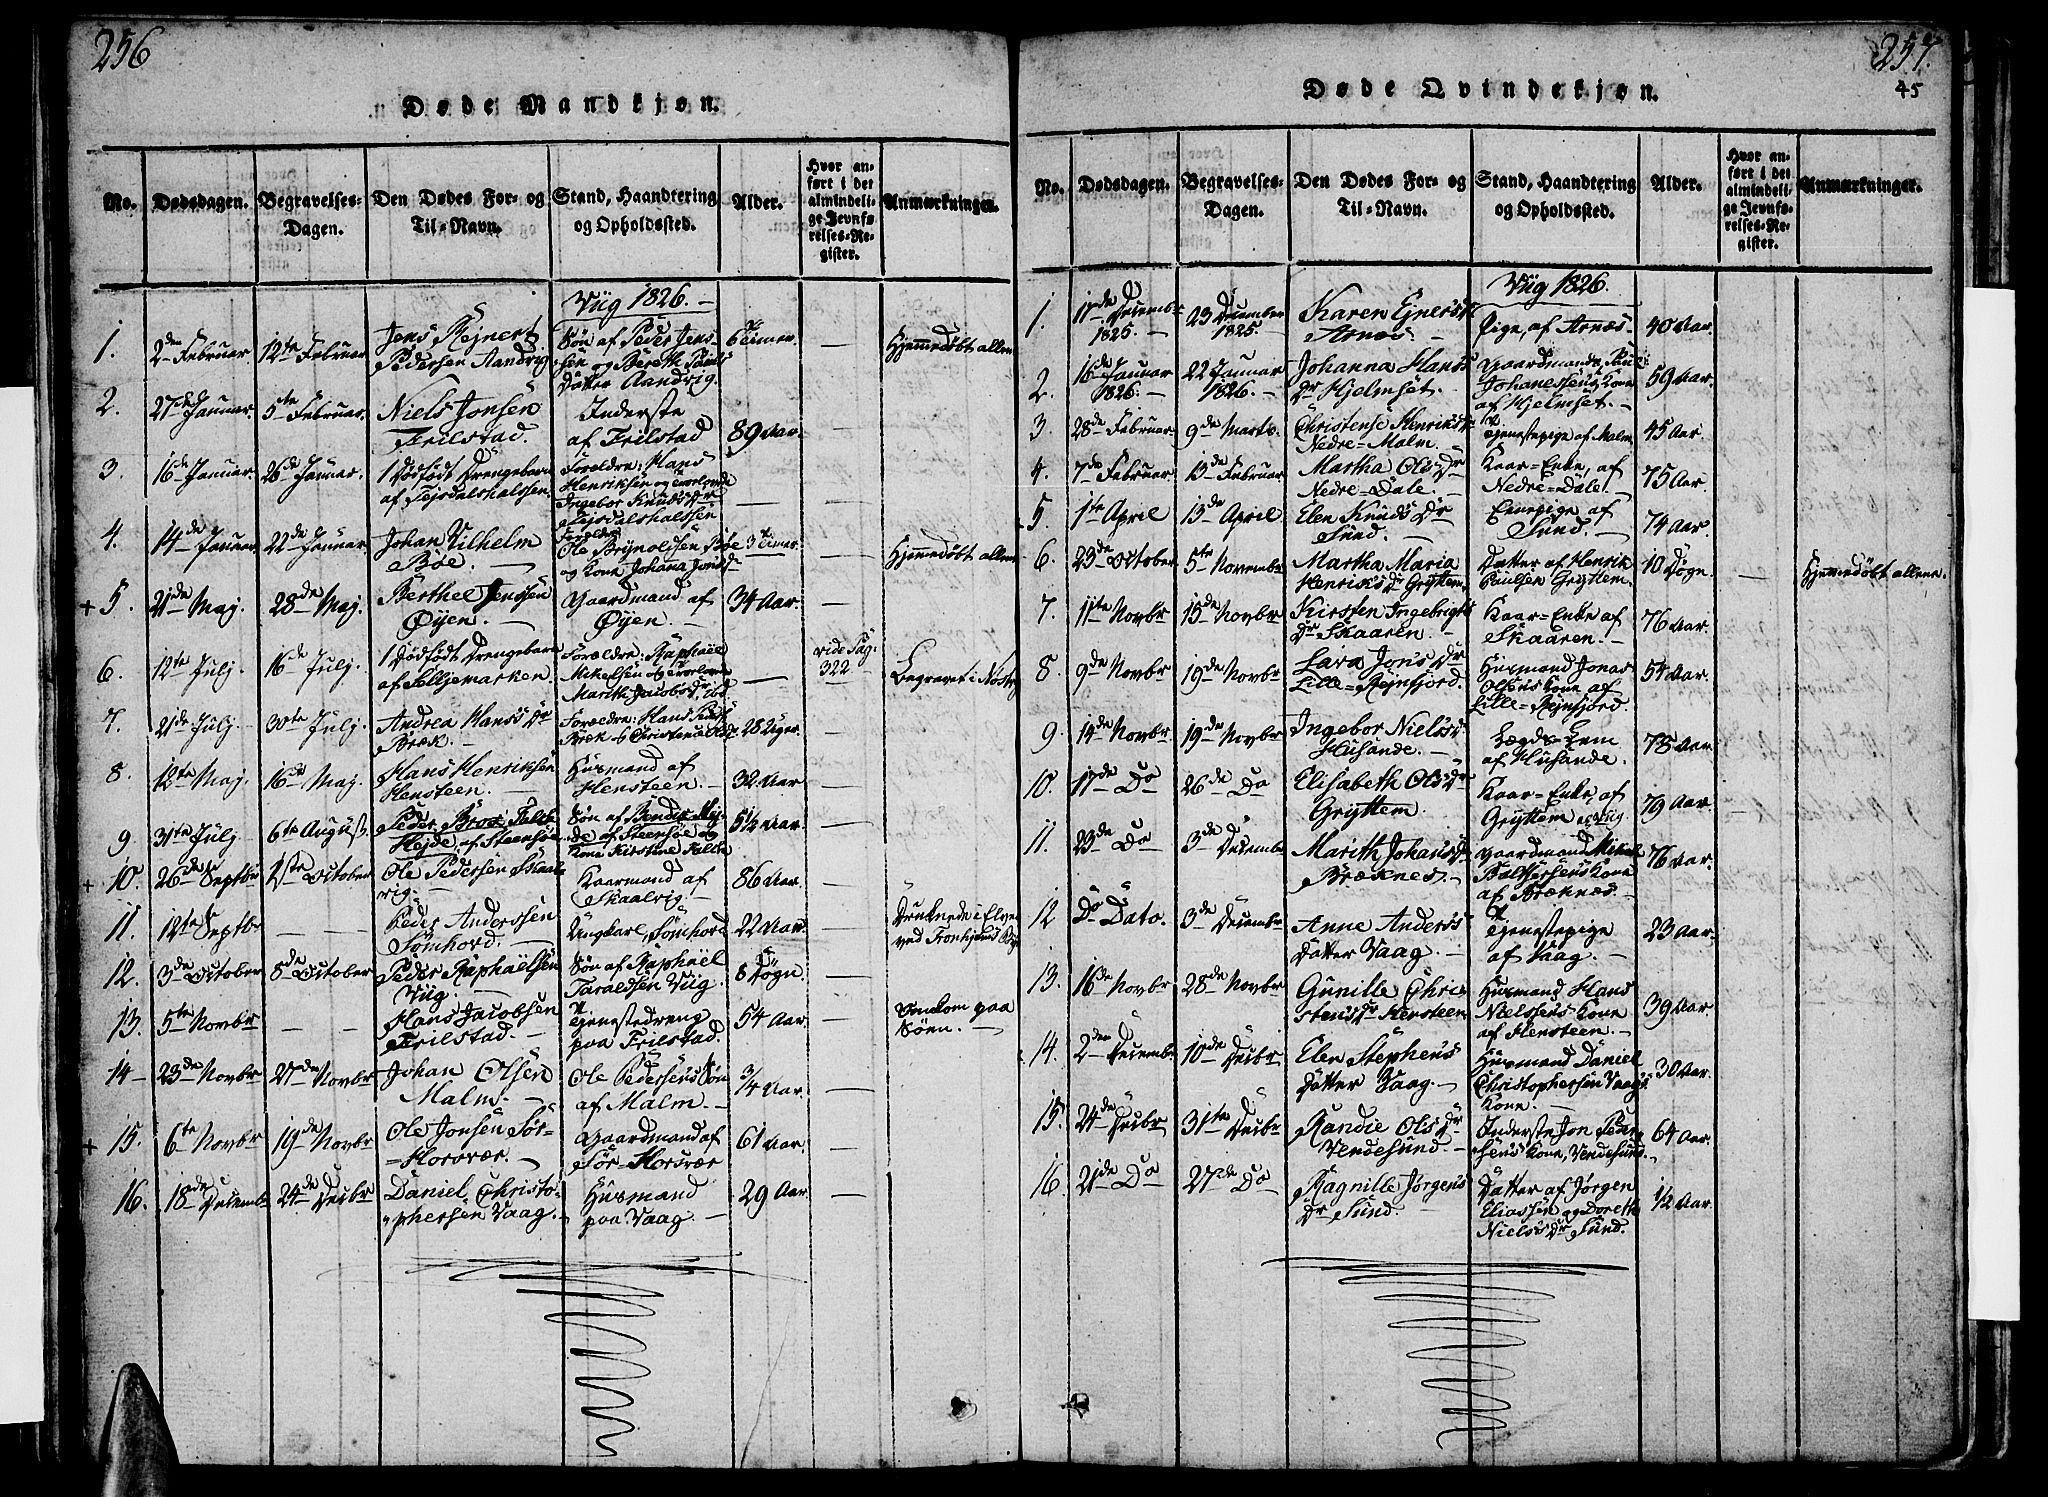 256
Døde Mandkjøn.
No.
Dødsdagen.
Begravelses-
Dagen.
Den Dødes For- og
Til-Navn.
Stand, Haandtering
og Opholdssted.
Alder.
Hvor an-
ført i det
almindeli-
ge Jevnfø-
relses-Re-
gister.
Anmærkninger.
Viig 1826. —
1.
2den Februar
12te Februar
Jens Rejnert
Pedersen Aandvig
Søn af Peder Jens-
sen og Bereth Pauls
Datter Aandvig.
6 Timer.
—
Hjemmedøbt allene
2.
27de Januar
5te Februar.
Niels Jonsen
Trilstad.
Inderste
af Trilstad
89 Aar.
—
3.
16de Januar
26de Januar.
1 Dødfødt Drengebarn
af Tejsdalshalssen.
Foreldre: Hans
Henriksen og trolovede
Ingebor Knuds Dr
Tejsdalshalssen
—
—
4.
14de Januar
22de Januar.
Johan Vilhelm
Bøe. —
Foreldre
Ole Brynoldsen Bøe
og Kone Johana Jonsd
3 Timer.
—
Hjemmedøbt allene
+ 5.
21de Maj
28de Maj.
Berthel Jenssen
Øyen. —
Gaardmand af
Øyen. —
34 Aar.
—
6.
12te Julj
16de Julj.
1 Dødfødt Drengebarn
af Selljemarken.
Forældre: Raphael
Mikelsen og trolovede
Marith Jacobsdr ibd
—
vide Pag:
322
Begravet i
7.
21de Julj
30te Julj.
Andrea Hans's Dr
Bræk. —
Forældre: Hans Peds
Bræk & Christena Olsdr
28 Uger.
—
8.
12te Maj.
16de Maj.
Hans Henriksen
Hensteen. —
Husmand af
Hensteen. —
32 Aar
—
9
31te Julj
6te August.
Peder Bros Falck
Hejde, af Steensøe
Søn af Bendix Hej-
de af Steensøe og
Kone Kirstine Falck
5½ Aar
—
+ 10.
26de Septbr
1ste October
Ole Pedersen Skaal-
vig. —
Kaarmand af
Skaalvig. —
86 Aar.
—
11.
12te Septbr
— —
Peder Anderssen
Sømhord. —
Ungkarl, Sømhord
22 Aar.
—
Druknede i Elven
ved Tronhjems Bye
12.
3de October
8de October
Peder Raphaelsen
Viig. —
Søn af Raphael
Taraldsen Viig.
8 Døgn.
—
13.
5te Novbr
— —
Hans Jacobsen
Trilstad. —
Tjenestedreng
paa Trilstad.
54 Aar.
—
Omkom paa
Søen. —
14 —
23de Novbr
27de Novbr
Johan Olsen
Malm. —
Ole Pedersens Søn
af Malm. —
3/4 Aar.
—
+ 15.
6te Novbr
19de Novbr
Ole Jonsen Sør-
= Horsvær. —
Gaardmand af
Sør = Horsvær
61 Aar.
—
16.
18de Decemb.
24de Decbr
Daniel Christo-
phersen Vaag. —
Husmand
paa Vaag. —
29 Aar.
—
257.
45
Døde Qvindekjøn.
No.
Dødsdagen.
Begravelses-
Dagen.
Den Dødes For- og
Til-Navn.
Stand, Haandtering
og Opholdssted.
Alder.
Hvor an-
ført i det
almindeli-
ge Jevnfø-
relses-Re-
gister.
Anmærkninger.
Viig 1826.
1.
17de Decembr
1825. —
23 December
1825. —
Karen Ejners Dr
Arnøe. —
Pige, af Arnøes.
40 Aar.
2.
16de Januar
1826. —
22 Januar
1826. —
Johanna Hans's
Dr Hjelmset.
Gaardmands Paul
Johanessens Kone
af Hjelmset. —
59 Aar.
3.
28de Februar
9de Marts.
Christense Henriksdr
Nedre = Malm.
Tjenestepige af Malm
45 Aar.
4.
7de Februar
13de Februar
Martha Ols Dr
Nedre = Dale. —
Kaar = Enke, af
Nedre = Dale.
75 Aar.
5.
1te April
13de April
Elen Knuds Dr
Sund. —
af
Sund. —
74 Aar.
6.
23de October
5te Novembr
Martha Maria
Henriks Dr Gryttem.
Datter af Henrik
Paulsen Gryttem.
10 Døgn.
—
Hjemmedøbt allene.
7.
11te Novbr
15de Novbr
Kirsten Ingebrigts
Dr Skaaren. —
Kaar = Enke af
Skaaren. —
76 Aar.
8.
9de Novbr
19de Novbr
Lava Jons Dr
Lille = Rejnfjord.
Husmand Jonas
Olsens Kone af
Lille = Rejnfjord.
54 Aar.
9.
14de Novbr
19de Novbr
Ingebor Nielsdr
Husande. —
Lægds = Lem
af Husande. —
78 Aar.
10.
17de Do
26de Do
Elisabeth Olsdr
Gryttem
Kaar = Enke, af
Gryttem
79 Aar.
11.
23de Do
3de Decembr
Marith Johansdr
Bræknes. —
Gaardmand Mikel
Balthersens Kone
af Bræknæs. —
76 Aar.
12
Do Dato.
3de Decembr
Anne Anders's
Datter Vaag. —
Tjenestepige
af Vaag. —
23 Aar.
13.
16de Novbr
28de Novbr
Gunille Chri-
stensdr Hensteen
Husmand Hans
Nielssens Kone
af Hensteen. —
39 Aar.
14.
2den Decembr
10de Decbr
Elen Stephens
Datter Vaag. —
Husmand Daniel
Christophersen Vaags
Kone. —
30 Aar.
15.
24de Decbr
31te Decbr
Randie Ols Dr
Vendesund. —
Inderste Jon Peder-
sens Kone, Vendesund.
64 Aar.
16.
21de Do
27de Do
Ragnille Jørgens
Dr Sund. —
Datter af Jørgen
Eliassen og Doreth
Niels's Dr Sund.
1/2 Aar.